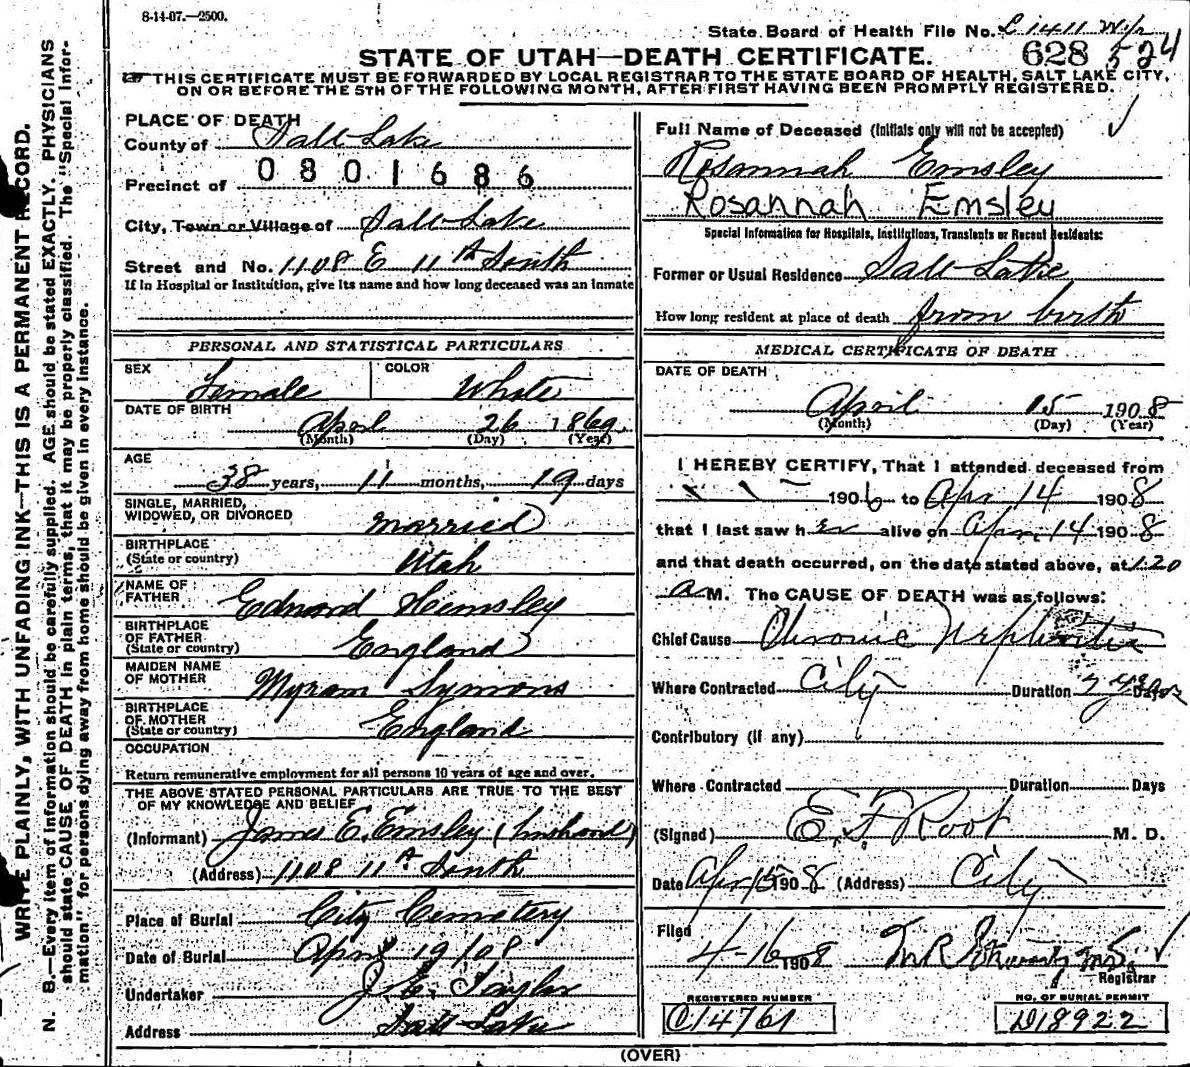 8-14-07.—2500.
State Board of Health File No. C 1411
628 524
STATE OF UTAH—DEATH CERTIFICATE.
THIS CERTIFICATE MUST BE FORWARDED BY LOCAL REGISTRAR TO THE STATE BOARD OF HEALTH, SALT LAKE CITY,
ON OR BEFORE THE 5TH OF THE FOLLOWING MONTH, AFTER FIRST HAVING BEEN PROMPTLY REGISTERED.
WRITE PLAINLY, WITH UNFADING INK—THIS IS A PERMANENT RECORD.
N. B.—Every item of information should be carefully supplied. AGE should be stated EXACTLY. PHYSICIANS
should state CAUSE OF DEATH in plain terms, that it may be properly classified. The "Special Infor-
mation" for persons dying away from home should be given in every instance.
PLACE OF DEATH
County of Salt Lake
0801686
Precinct of
City, Town or Village of Salt Lake
Street and No. 1108 E 11th South
If in Hospital or Institution, give its name and how long deceased was an inmate
PERSONAL AND STATISTICAL PARTICULARS
SEX Female COLOR White
DATE OF BIRTH April 26 1869
(Month) (Day) (Year)
AGE
38 years, 11 months, 19 days
SINGLE, MARRIED,
WIDOWED, OR DIVORCED married
BIRTHPLACE
(State or country) Utah
NAME OF
FATHER Edward Hemsley
BIRTHPLACE
OF FATHER
(State or country) England
MAIDEN NAME
OF MOTHER Myram Symons
BIRTHPLACE
OF MOTHER
(State or country) England
OCCUPATION
Return remunerative employment for all persons 10 years of age and over.
THE ABOVE STATED PERSONAL PARTICULARS ARE TRUE TO THE BEST
OF MY KNOWLEDGE AND BELIEF
(Informant) James E. Emsley (husband)
(Address) 1108 11th South
Place of Burial City Cemetery
Date of Burial April 19/08
Undertaker J. E. Taylor
Address Salt Lake
Full Name of Deceased (Initials only will not be accepted)
Rosannah Emsley
Rosannah Emsley
Special Information for Hospitals, Institutions, Transients or Recent Residents:
Former or Usual Residence Salt Lake
How long resident at place of death from birth
MEDICAL CERTIFICATE OF DEATH
DATE OF DEATH
April 15 1908
(Month) (Day) (Year)
I HEREBY CERTIFY, That I attended deceased from
1906 to Apr 14 1908
that I last saw her alive on Apr. 14 1908
and that death occurred, on the date stated above, at 1:20
a M. The CAUSE OF DEATH was as follows:
Chief Cause Chronic Nephritis
Where Contracted City Duration 2 years Days
Contributory (if any)
Where Contracted Duration Days
(Signed) E. F. Root M. D.
Date Apr 15 1908 (Address) City
Filed
4-16 1908 M R
Registrar
REGISTERED NUMBER
C14761
NO. OF BURIAL PERMIT
D18922
(OVER)